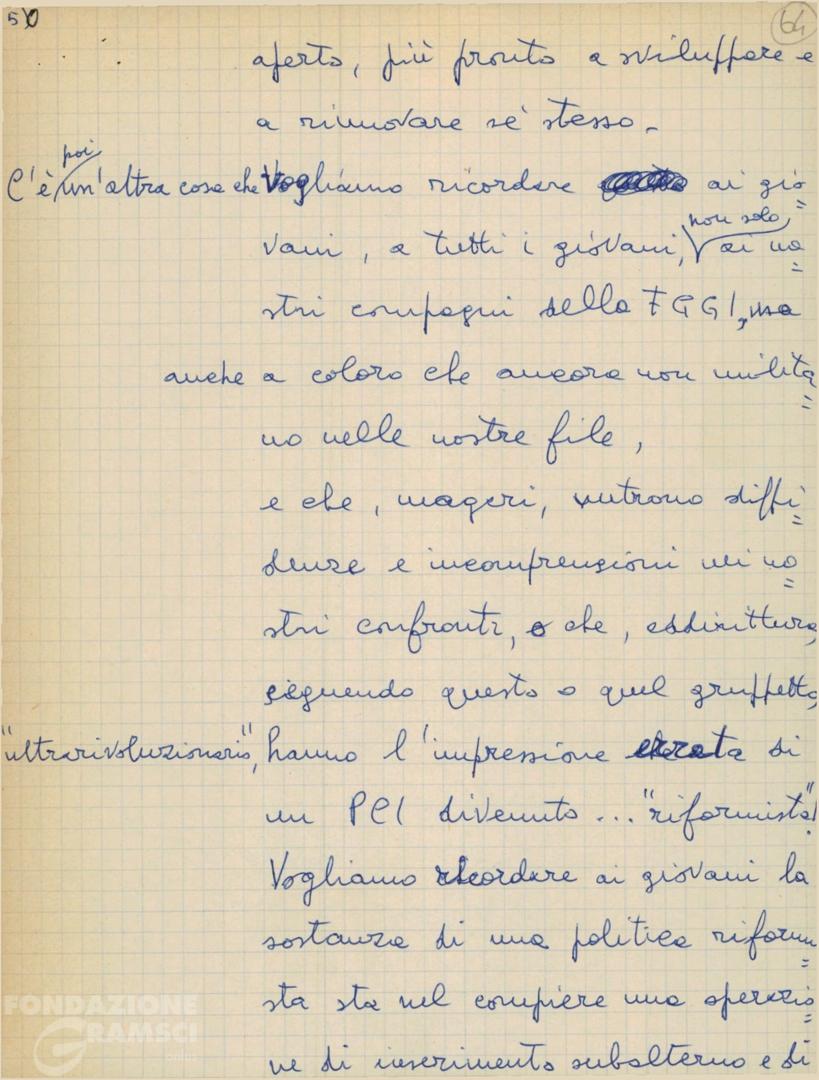 50 64
aperto, più pronto a sviluppare e
a rinnovare sé stesso.
C'è poi un'altra cosa che Vogliamo ricordare ai gio=
vani, a tutti i giovani, non solo ai no=
stri compagni della FGCI, ma
anche a coloro che ancora non milita=
no nelle nostre file,
e che, magari, nutrono diffi=
denze e incomprensioni nei no=
stri confronti, o che, addirittura,
seguendo questo o quel gruppetto,
"ultrarivoluzionario", hanno l'impressione errata di
un PCI divenuto ... "riformista"!
Vogliamo ricordare ai giovani la
sostanza di una politica riformi=
sta sta nel compiere una operazio=
ne di inserimento subalterno e di
FONDAZIONE
GRAMSCI